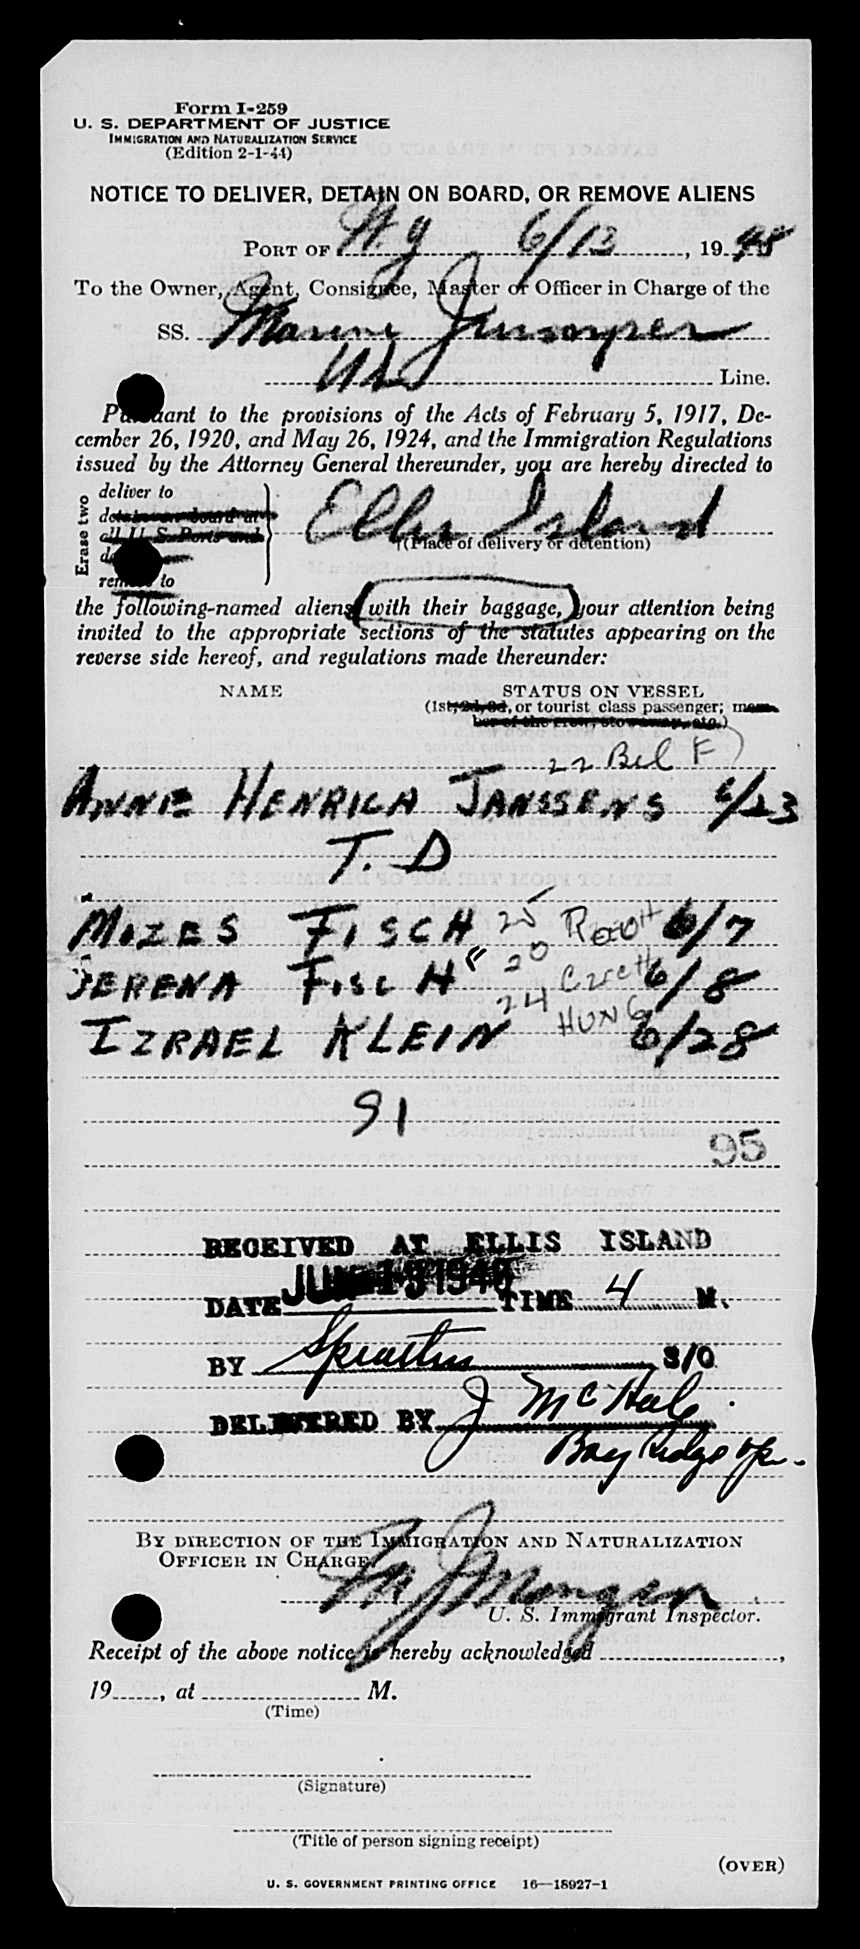 Form I-259
U. S. DEPARTMENT OF JUSTICE
IMMIGRATION AND NATURALIZATION SERVICE
(Edition 2-1-44)
NOTICE TO DELIVER, DETAIN ON BOARD, OR REMOVE ALIENS
PORT OF N. Y 6/13, 1948
To the Owner, Agent, Consignee, Master or Officer in Charge of the
SS. Marine
Line.
Pursuant to the provisions of the Acts of February 5, 1917, De-
cember 26, 1920, and May 26, 1924, and the Immigration Regulations
issued by the Attorney General thereunder, you are hereby directed to
Erase two
deliver to
detain on board at
all U. S. Ports and
remove to
Ellis Island
(Place of delivery or detention)
the following-named aliens with their baggage, your attention being
invited to the appropriate sections of the statutes appearing on the
reverse side hereof, and regulations made thereunder:
NAME STATUS ON VESSEL
(1st, 2d, 3d, or tourist class passenger; mem-
ber of the crew, stowaway, etc.)
22 Bel F
ANNIE HENRICA JANSSENS 6/23
T. D
MOZES FISCH 25 6/7
SERENA FISCH F 20 Czech 6/8
IZRAEL KLEIN 24 HUNG 6/28
91
95
RECEIVED AT ELLIS ISLAND
DATE JUN 13 1948 TIME 4 M.
BY S/O
DELIVERED BY J McHale
Bay Ridge Op.
BY DIRECTION OF THE IMMIGRATION AND NATURALIZATION
OFFICER IN CHARGE
U. S. Immigrant Inspector.
Receipt of the above notice is hereby acknowledged ,
19 , at M.
(Time)
(Signature)
(Title of person signing receipt)
(OVER)
U. S. GOVERNMENT PRINTING OFFICE 16—18927-1